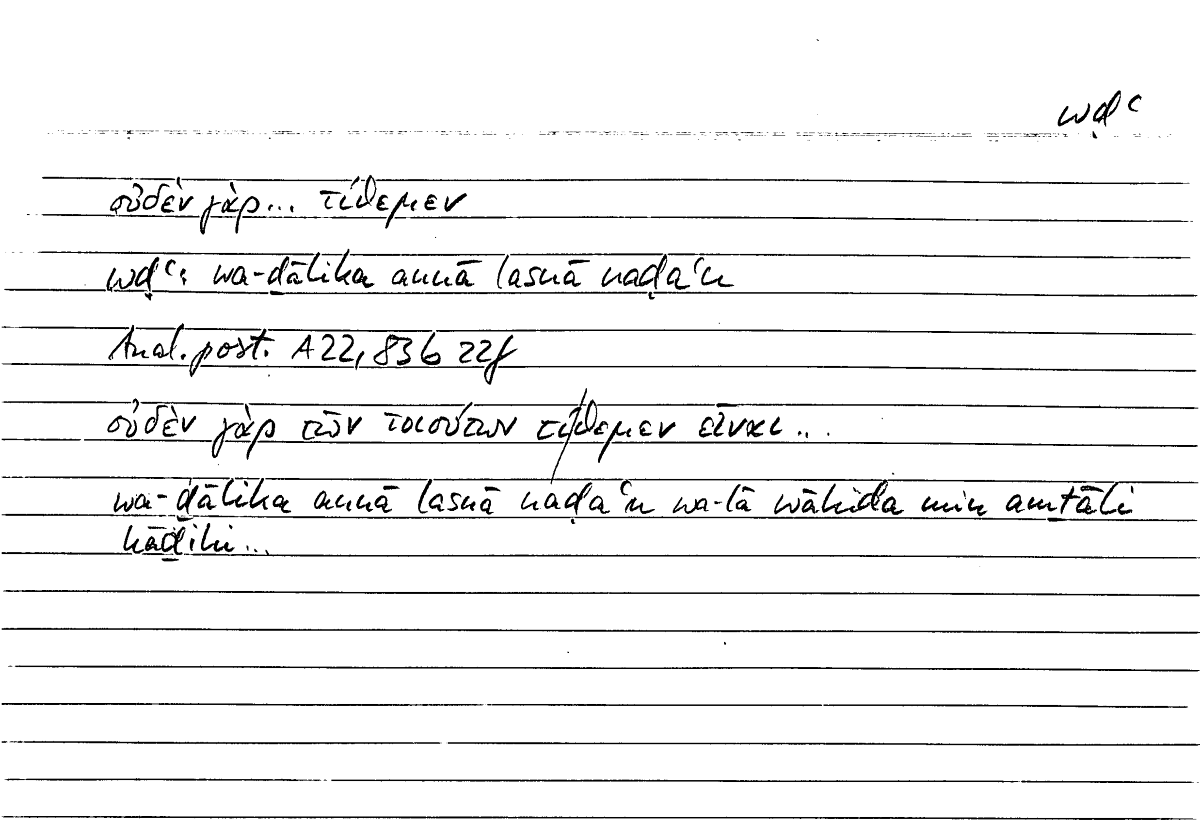 wḍʿ
οὐδὲν γὰρ... τίθεμεν
wḍʿ: wa-ḏālika annā lasnā naḍaʿu
Anal. post. A22, 83b 22f
οὐδὲν γὰρ τῶν τοιούτων τίθεμεν εἶναι...
wa-ḏālika annā lasnā naḍaʿu wa-lā wāḥida min amṯāli
hāḏihi...